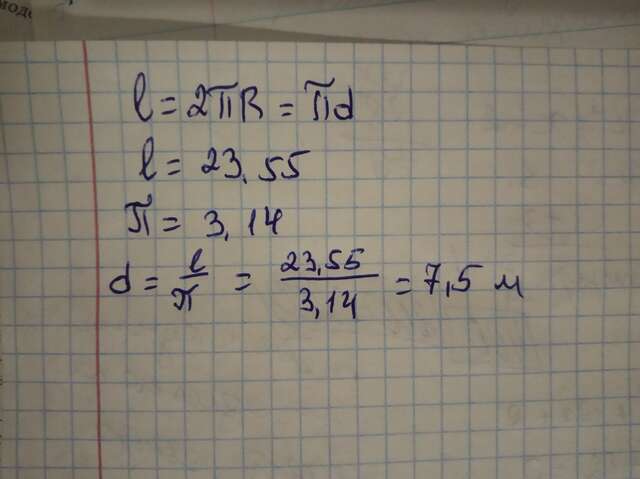 l = 2πR = πd
l = 23,55
π = 3,14
d = l/π = 23,55/3,14 = 7,5 м